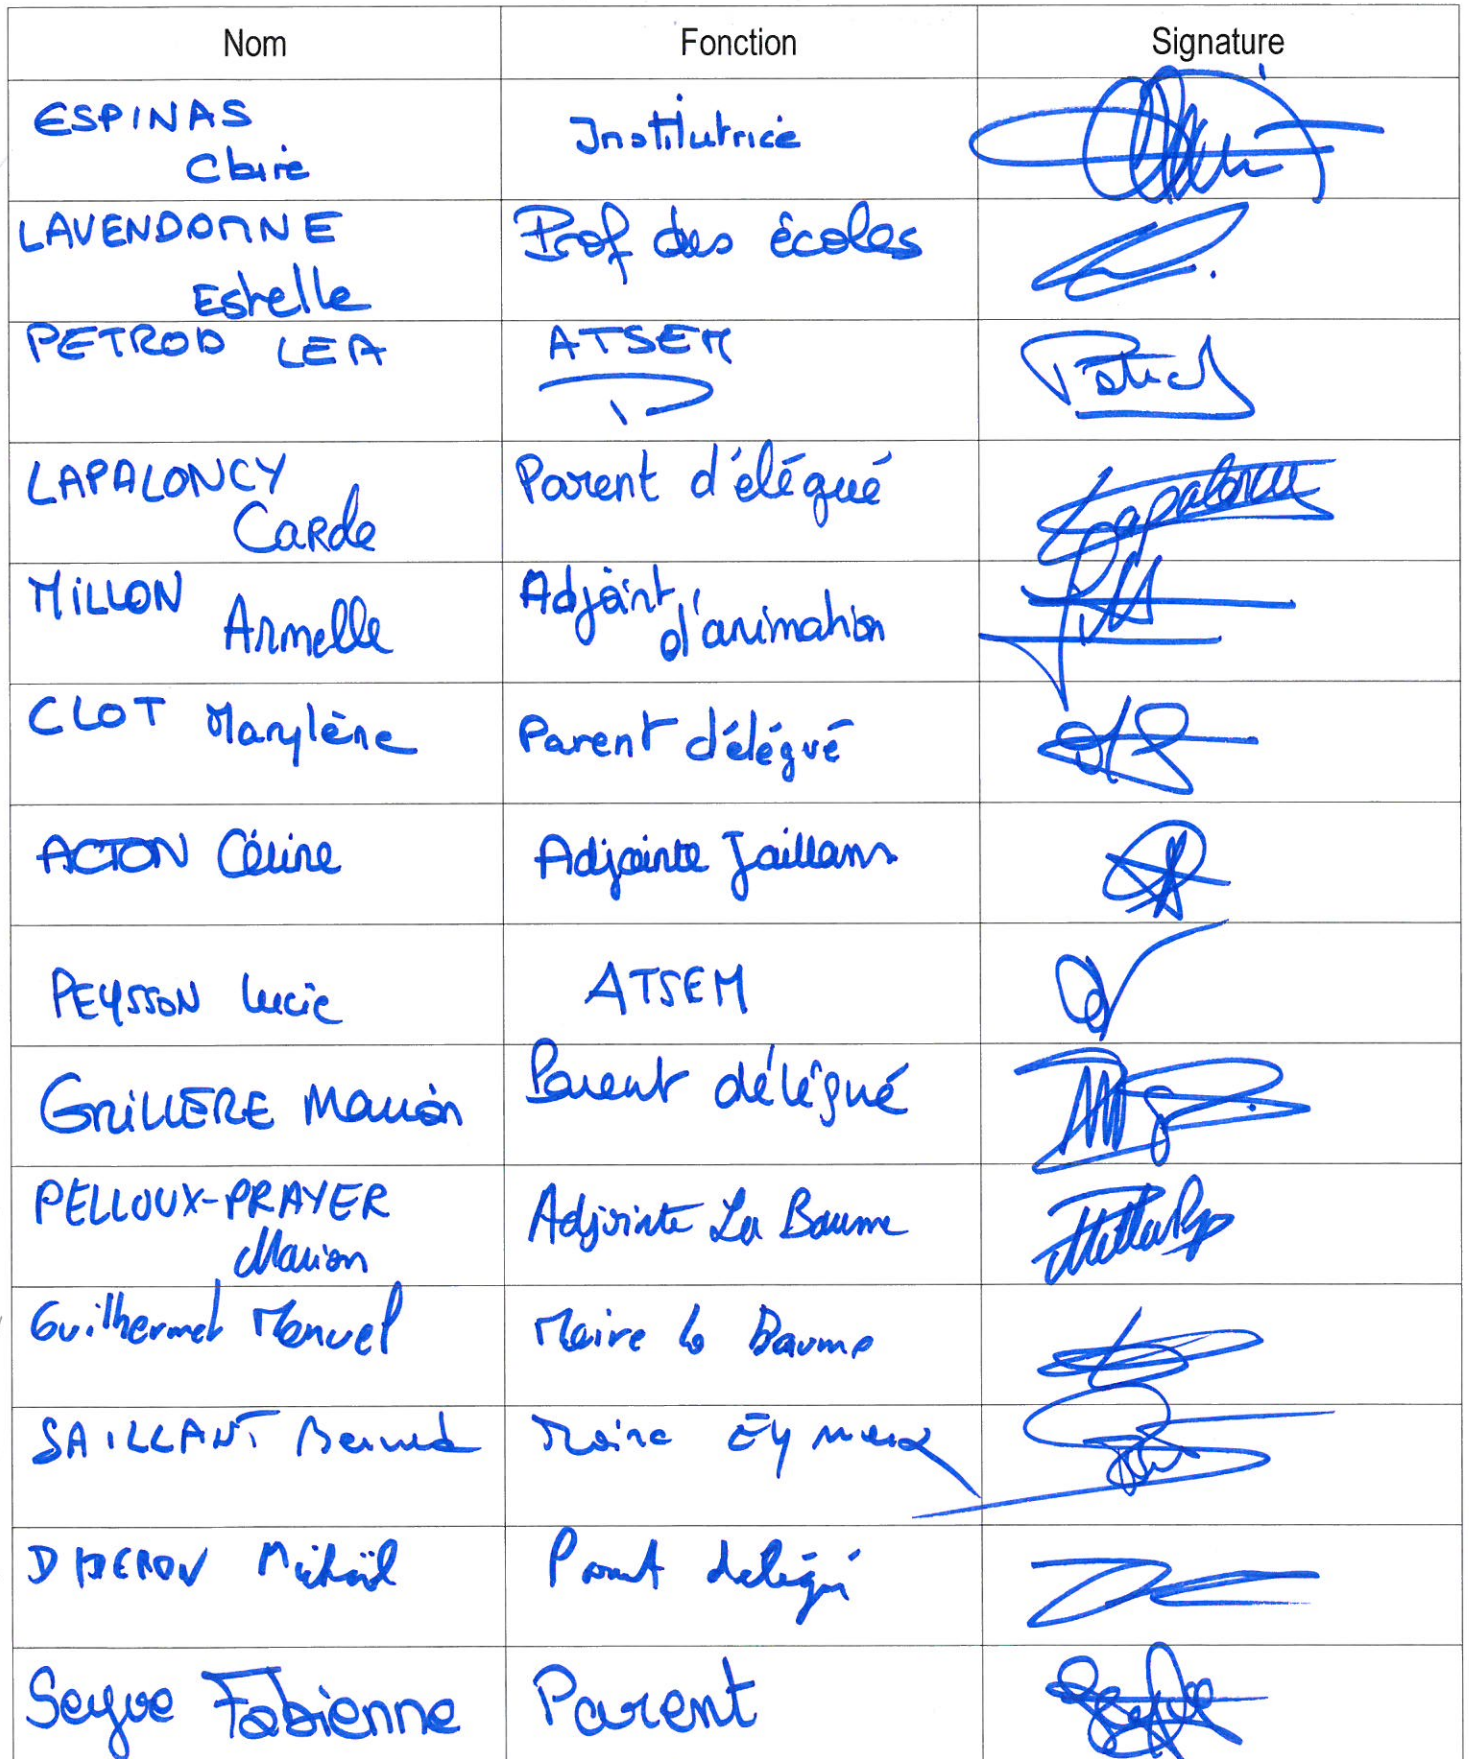 Nom Fonction Signature
ESPINAS Institutrice
Claire
LAVENDOMNE Prof des écoles
Estelle
PETROD LEA ATSEM
LAPALONCY Parent d'élégué
Carole
MILLON Adjoint
Armelle d'animation
CLOT Marylène Parent d'élégué
ACTON Céline Adjointe Jaillans
PEYSSON Lucie ATSEM
GRILLERE Marion Parent délégué
PELLOUX-PRAYER Adjointe La Baume
Marion
Guilhermet Manuel Maire la Baume
SAILLANT Bernard Maire Eymeux
Mickaël Parent délégué
Seyve Fabienne Parent